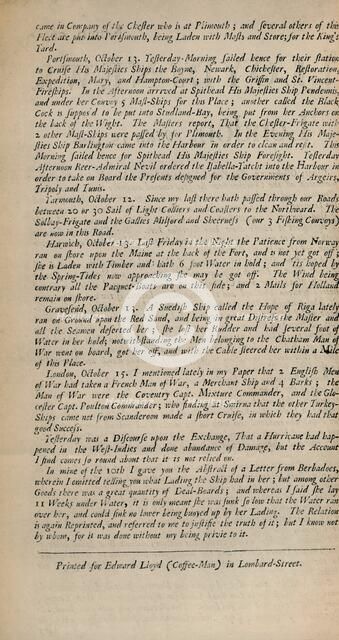 came in Company of the Chester who is at Plimouth ; and several others of this
Fleet are put into Portsmouth, being Laden with Masts and Stores, for the King's
Yard.
Portsmouth, October 13. Yesterday-Morning sailed hence for their station
to Cruise His Majesties Ships the Boyne, Newark, Chichester, Restoration,
Expedition, Mary, and Hampton-Court ; with the Griffin and St. Vincent-
Fireships. In the Afternoon arrived at Spithead His Majesties Ship Pendennis,
and under her Convoy 5 Mast-Ships for this Place ; another called the Black
Cock is suppos'd to be put into Studland-Bay, being put from her Anchors on
the back of the Wight. The Masters report, That the Chester-Frigate with
2 other Mast-Ships were passed by for Plimouth. In the Evening His Maje-
sties Ship Burlington came into the Harbour in order to clean and refit. This
Morning sailed hence for Spithead His Majesties Ship Foresight. Yesterday
Afternoon Reer-Admiral Nevil ordered the Isabella-Yatcht into the Harbour in
order to take on Board the Presents designed for the Governments of Argeirs,
Tripoly and Tunis.
Yarmouth, October 12. Since my last there hath passed through our Roads
between 20 or 30 Sail of Light Colliers and Coasters to the Northward. The
Solbay-Frigat and the Gallies Milford and Sheerness (our 3 Fishing Convoys)
are now in this Road.
Harwich, October 13. Last Friday in the Night the Patience from Norway
ran on shore upon the Maine at the back of the Fort, and is not yet got off ;
she is Laden with Timber and hath 6 foot Water in hold ; and 'tis hoped by
the Spring-Tides now approaching she may be got off. The Wind being
contrary all the Pacquet-Boats are on this side; and 2 Mails for Holland
remain on shore.
Gravesend, October 13. A Swedish Ship called the Hope of Riga lately
ran on Ground upon the Red Sand, and being in great Distress the Master and
all the Seamen deserted her ; she lost her Rudder and had several foot of
Water in her hold; notwithstanding the Men belonging to the Chatham Man of
War went on board, got her off, and with the Cable steered her within a Mile
of this Place.
London, October 15. I mentioned lately in my Paper that 2 English Men
of War had taken a French Man of War, a Merchant Ship and 4 Barks ; the
Men of War were the Coventry Capt. Mixture Commander, and the Glo-
cester Capt. Poulton Commander ; who finding at Smirna that the other Turkey-
Ships came not from Scanderoon made a short Cruise, in which they had that
good Success.
Yesterday was a Discourse upon the Exchange, That a Hurricane had hap-
pened in the West-Indies and done abundance of Damage, but the Account
I find comes so round about that it is not relied on.
In mine of the 10th I gave you the Abstract of a Letter from Berbadoes,
wherein I omitted telling you what Lading the Ship had in her ; but among other
Goods there was a great quantity of Deal-Boards ; and whereas I said she lay
11 Weeks under Water, it is only meant she was sunk so low that the Water ran
over her, and could sink no lower being buoyed up by her Lading. The Relation
is again Reprinted, and referred to me to justifie the truth of it ; but I know not
by whom, for it was done without my being privie to it.
Printed for Edward Lloyd (Coffee-Man) in Lombard-Street.